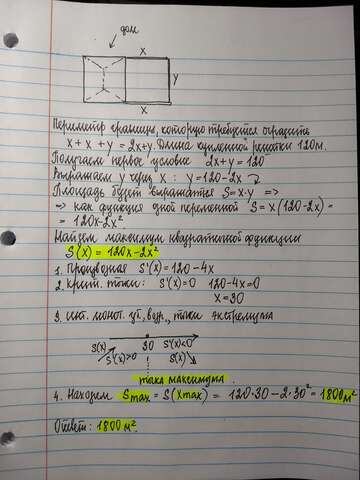 дом
x
y
x
Периметр границы, которую требуется оградить
x + x + y = 2x+y. Длина купленной решетки 120м.
Получаем первое условие 2x+y = 120
Выражаем y через x : y=120-2x
Площадь будет выражаться S=x·y =>
=> как функция одной переменной S = x(120-2x) =
= 120x-2x².
Найдем максимум квадратичной функции
S(x) = 120x-2x²
1. Производная S'(x)=120-4x
2. Крит. точки: S'(x)=0 120-4x=0
x=30
3. инт. монот. уб., возр., точки экстремума
S(x) S'(x)>0 30 S'(x)<0 S(x)
точка максимума.
4. Находим Smax = S(xmax) = 120·30 - 2·30² = 1800м²
Ответ: 1800м².